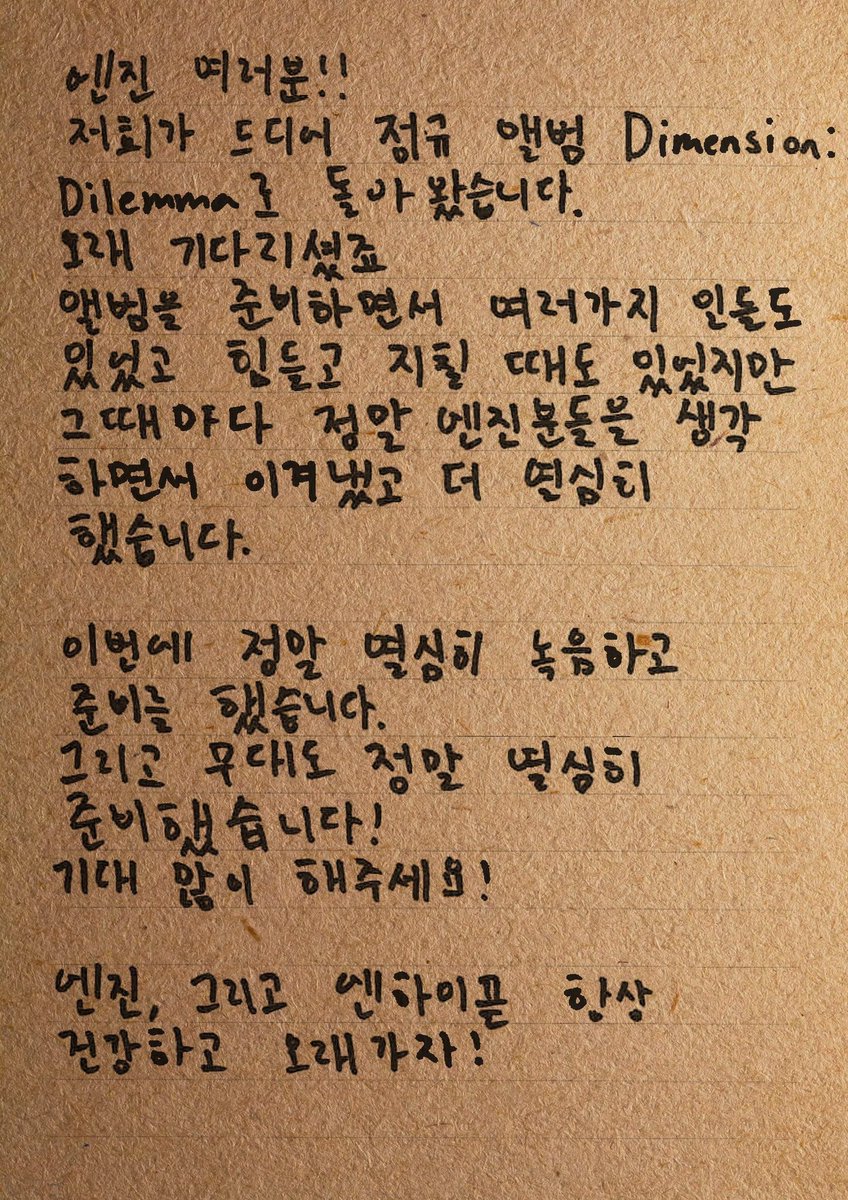 엔진 여러분!!
저희가 드디어 정규 앨범 Dimension:
Dilemma로 돌아왔습니다.
오래 기다리셨죠
앨범을 준비하면서 여러가지 일들도
있었고 힘들고 지칠 때도 있었지만
그때마다 정말 엔진분들을 생각
하면서 이겨냈고 더 열심히
했습니다.
이번에 정말 열심히 녹음하고
준비를 했습니다.
그리고 무대도 정말 열심히
준비했습니다!
기대 많이 해주세요!
엔진, 그리고 엔하이픈 항상
건강하고 오래가자!